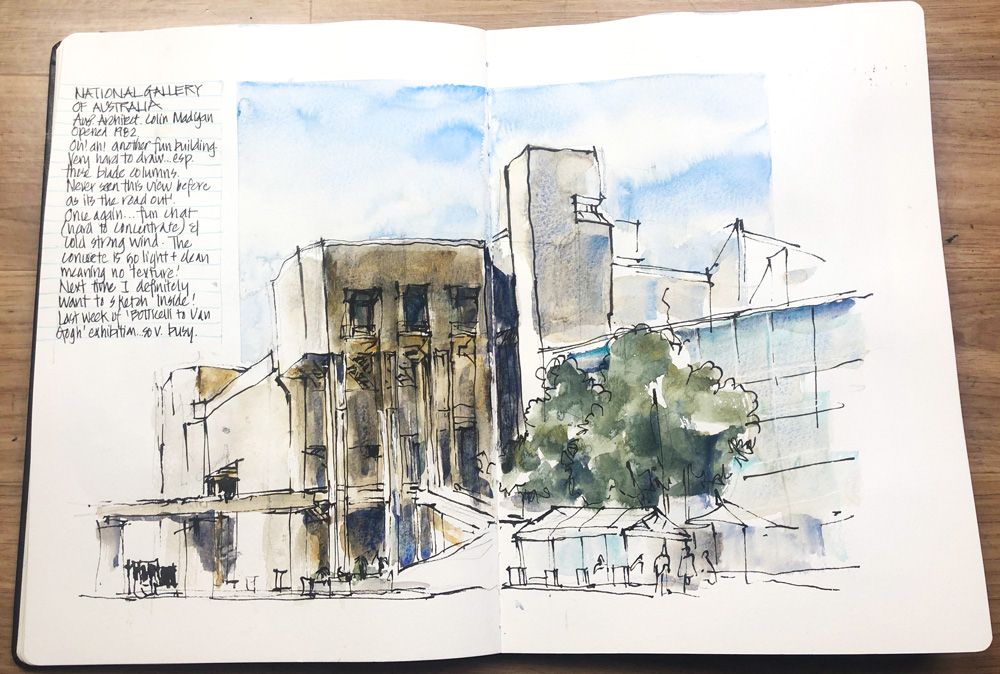 NATIONAL GALLERY
OF AUSTRALIA
Aus? Architect. Colin Madigan
Opened 1982.
Oh! ah! another fun building
Very hard to draw... esp.
those blade columns.
Never seen this view before
as its the road out!
Once again... fun chat
(hard to concentrate) &
cold strong wind. The
concrete is so light + clean
meaning no 'texture'!
Next time I definitely
want to sketch 'inside'!
Last week of 'Botticelli to Van
Gogh' exhibition... so v. busy.